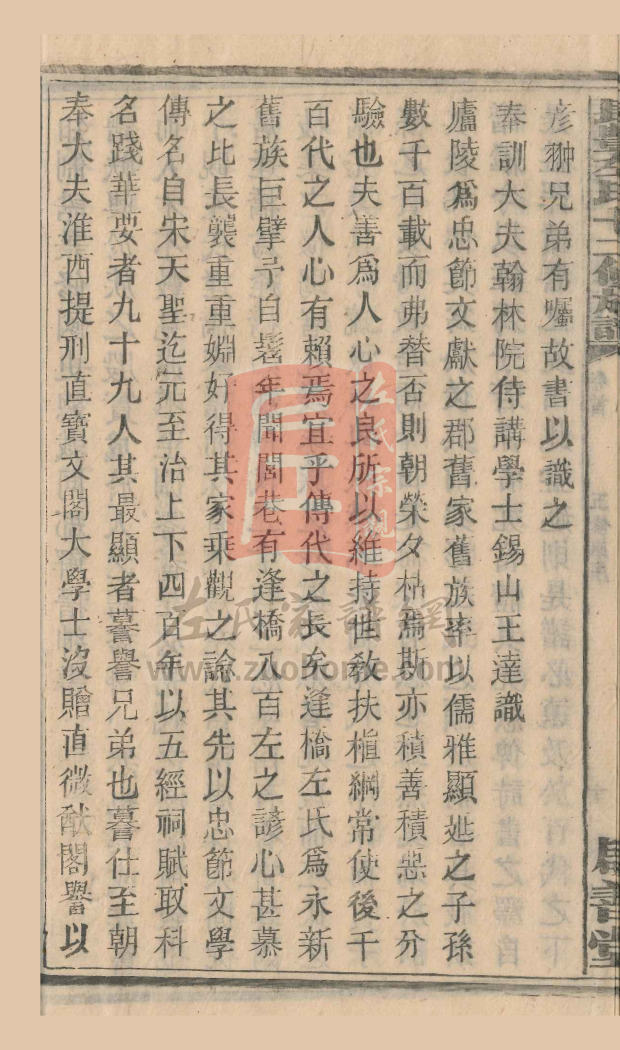 彦翀兄弟有囑故書以識之
奉訓大夫翰林院侍講學士錫山王達識
廬陵爲忠節文獻之郡舊家舊族率以儒雅顯延之子孫
數千百載而弗替否則朝榮夕枯焉斯亦積善積惡之分
驗也夫善爲人心之良所以維持世教扶植綱常使後千
百代之人心有賴焉宜乎傳代之長矣逢橋左氏爲永新
舊族巨擘予自髫年聞閭巷有逢橋八百左之諺心甚慕
之比長襲重重婣好得其家乘觀之諗其先以忠節文學
傳名自宋天聖迄元至治上下四百年以五經祠賦取科
名踐華要者九十九人其最顯者謩譽兄弟也謩仕至朝
奉大夫淮西提刑直寶文閣大學士沒贈直微猷閣譽以
左氏宗祠
左氏家譜網
www.zuohome.com